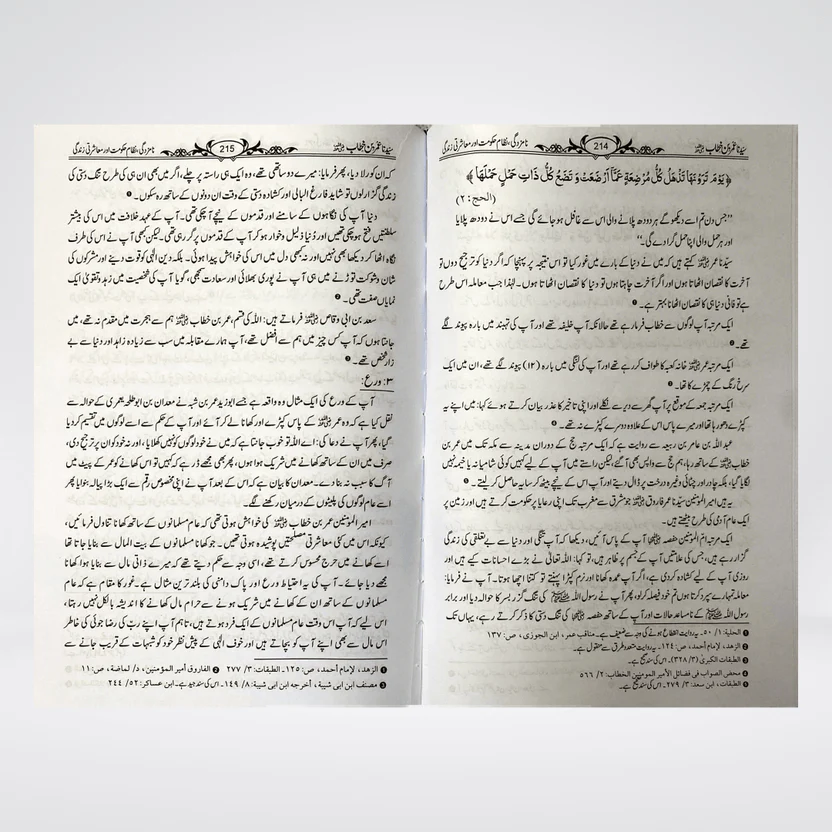 سیّدنا عمر بن خطاب رضی اللہ عنہ 214 نامزدگی، نظام حکومت اور معاشرتی زندگی
﴿يَوْمَ تَرَوْنَهَا تَذْهَلُ كُلُّ مُرْضِعَةٍ عَمَّا أَرْضَعَتْ وَتَضَعُ كُلُّ ذَاتِ حَمْلٍ حَمْلَهَا﴾
(الحج: ٢)
’’جس دن تم اسے دیکھو گے ہر دودھ پلانے والی اس سے غافل ہو جائے گی جسے اس نے دودھ پلایا
اور ہر حمل والی اپنا حمل گرا دے گی۔‘‘
سیّدنا عمر رضی اللہ عنہ کہتے ہیں کہ میں نے دنیا کے بارے میں غور کیا تو اس نتیجہ پر پہنچا کہ اگر دنیا کو ترجیح دوں تو
آخرت کا نقصان اٹھاتا ہوں اور اگر آخرت چاہتا ہوں تو دنیا کا نقصان اٹھاتا ہوں۔ لہٰذا جب معاملہ اس طرح
ہے تو فانی دنیا ہی کا نقصان اٹھانا بہتر ہے۔ ❶
ایک مرتبہ آپ لوگوں سے خطاب فرما رہے تھے حالانکہ آپ خلیفہ تھے اور آپ کی تہبند میں بارہ پیوند لگے
تھے۔ ❷
ایک مرتبہ عمر رضی اللہ عنہ خانہ کعبہ کا طواف کر رہے تھے اور آپ کی لنگی میں بارہ (۱۲) پیوند لگے تھے، ان میں ایک
سرخ رنگ کے چمڑے کا تھا۔ ❸
ایک مرتبہ جمعہ کے موقع پر آپ گھر سے دیر سے نکلے اور اپنی تاخیر کا عذر بیان کرتے ہوئے کہا: میں اپنے یہ
کپڑے دھو رہا تھا اور میرے پاس اس کے علاوہ دوسرے کپڑے نہ تھے۔ ❹
عبداللہ بن عامر بن ربیعہ سے روایت ہے کہ ایک مرتبہ حج کے دوران مدینہ سے مکہ تک میں عمر بن
خطاب رضی اللہ عنہ کے ساتھ رہا، ہم حج سے واپس بھی آگئے، لیکن راستے میں آپ کے لیے کہیں کوئی شامیانہ یا خیمہ نہیں
لگایا گیا، بلکہ چادر اور چٹائی وغیرہ درخت پر ڈال دیتے اور آپ اس کے نیچے بیٹھ کر سایہ حاصل کر لیتے۔ ❺
یہ ہیں امیر المؤمنین سیّدنا عمر فاروق رضی اللہ عنہ جو مشرق سے مغرب تک اپنی رعایا پر حکومت کرتے ہیں اور زمین پر
ایک عام آدمی کی طرح بیٹھتے ہیں۔
ایک مرتبہ امّ المؤمنین حفصہ رضی اللہ عنہا آپ کے پاس آئیں، دیکھا کہ آپ تنگی اور دنیا سے بے تعلقی کی زندگی
گزار رہے ہیں، جس کی علامتیں آپ کے جسم پر ظاہر ہیں، تو کہا: اللہ تعالیٰ نے بڑے احسانات کیے ہیں اور
روزی آپ کے لیے کشادہ کر دی ہے، اگر آپ عمدہ کھانا اور نرم کپڑا پہنتے تو کتنا اچھا ہوتا۔ آپ نے فرمایا:
معاملہ تمہارے سپرد کرتا ہوں تم خود فیصلہ کر لو، پھر آپ نے رسول اللہ ﷺ کی تنگ گزر بسر کا حوالہ دیا اور برابر
رسول اللہ ﷺ کے نامساعد حالات اور آپ کے ساتھ حفصہ رضی اللہ عنہا کی تنگ دستی کا ذکر کرتے رہے، یہاں تک
❶ الحلیة: ۱/ ۵۰۔ یہ روایت انقطاع ہونے کی وجہ سے ضعیف ہے۔ مناقب عمر، ابن الجوزی، ص: ۱۳۷
❷ الزهد، لإمام أحمد، ص: ۱۲۴۔ یہ روایت متعدد طرق سے منقول ہے۔
❸ الطبقات الکبریٰ (۳/ ۳۲۸)۔ اس کی سند صحیح ہے۔
❹ محض الصواب فی فضائل الأمیر المؤمنین الخطاب: ۲/ ۵۶۶
❺ الطبقات، ابن سعد: ۳/ ۲۷۹۔ اس کی سند صحیح ہے۔
سیّدنا عمر بن خطاب رضی اللہ عنہ 215 نامزدگی، نظام حکومت اور معاشرتی زندگی
کہ ان کو رلا دیا، پھر فرمایا: میرے دو ساتھی تھے، وہ ایک ہی راستہ پر چلے، اگر میں بھی ان ہی کی طرح تنگ دستی کی
زندگی گزار لوں تو شاید فارغ البالی اور کشادہ دستی کے وقت ان دونوں کے ساتھ رہ سکوں۔ ❶
دنیا آپ کی نگاہوں کے سامنے اور قدموں کے نیچے آچکی تھی۔ آپ کے عہد خلافت میں اس کی بیشتر
سلطنتیں فتح ہوچکی تھیں اور دُنیا ذلیل و خوار ہو کر آپ کے قدموں پر گر رہی تھی۔ لیکن کبھی آپ نے اس کی طرف
نگاہ اٹھا کر دیکھا بھی نہیں اور نہ کبھی دل میں اس کی خواہش پیدا ہوئی۔ بلکہ دین الٰہی کو قوت دینے اور مشرکوں کی
شان و شوکت توڑنے میں ہی آپ نے پوری بھلائی اور سعادت سمجھی، گویا آپ کی شخصیت میں زہد و تقویٰ ایک
نمایاں صفت تھی۔ ❷
سعد بن ابی وقاص رضی اللہ عنہ فرماتے ہیں: اللہ کی قسم، عمر بن خطاب رضی اللہ عنہ ہم سے ہجرت میں مقدم نہ تھے، میں
جانتا ہوں کہ آپ کس چیز میں ہم سے افضل تھے، آپ ہمارے مقابلہ میں سب سے زیادہ زاہد اور دنیا سے بے
زار شخص تھے۔ ❸
۳: ورع:
آپ کے ورع کی ایک مثال وہ واقعہ ہے جسے ابوزید عمر بن شبہ نے معدان بن ابوطلحہ یعمری کے حوالہ سے
نقل کیا ہے کہ وہ عمر رضی اللہ عنہ کے پاس کپڑے اور کھانا لے کر آئے اور آپ کے حکم سے اسے لوگوں میں تقسیم کر دیا
گیا، پھر آپ نے دعا کی: اے اللہ تو خوب جانتا ہے کہ میں نے خود لوگوں کو نہیں کھلایا، اور نہ خود کو ان پر ترجیح دی،
صرف میں ان کے ساتھ کھانے میں شریک ہوا ہوں، پھر بھی مجھے ڈر ہے کہ کہیں تو اس کھانے کو عمر کے پیٹ میں
آگ کا سبب نہ بنا دے۔ معدان کا بیان ہے کہ اس کے بعد آپ نے اپنی مخصوص رقم سے ایک بڑا پیالہ بنوایا پھر
اسے عام لوگوں کی پلیٹوں کے درمیان رکھنے لگے۔
امیر المؤمنین عمر بن خطاب رضی اللہ عنہ کی خواہش ہوتی تھی کہ عام مسلمانوں کے ساتھ کھانا تناول فرمائیں،
کیونکہ اس میں کئی معاشرتی مصلحتیں پوشیدہ ہوتی تھیں۔ جو کھانا مسلمانوں کے بیت المال سے بنایا جاتا تھا
اسے کھانے میں حرج محسوس کرتے تھے، اسی وجہ سے حکم دیتے تھے کہ میرے ذاتی مال سے بنایا ہوا کھانا
مجھے دیا جائے۔ آپ کی یہ احتیاط ورع اور پاک دامنی کی بلند ترین مثال ہے۔ غور کا مقام ہے کہ عام
مسلمانوں کے ساتھ ان کے کھانے میں شریک ہونے سے حرام مال کھانے کا اندیشہ بالکل نہیں رہتا،
اس لیے کہ آپ اس وقت عام مسلمانوں کے ایک فرد ہوتے ہیں، تاہم آپ اپنے ربّ کی رضا جوئی کی خاطر
اس مال سے بھی اپنے آپ کو بچاتے ہیں اور خوف الٰہی کے پیش نظر خود کو شبہات کے قریب جانے سے
❶ الزهد، لإمام أحمد، ص: ۱۲۵۔ الطبقات: ۳/ ۲۷۷ ❷ الفاروق أمیر المؤمنین، د/ لماضة، ص: ۱۱
❸ مصنف ابن ابی شیبة، أخرجه ابن ابی شیبة: ۸/ ۱۴۹۔ اس کی سند جید ہے۔ ابن عساکر: ۵۲/ ۲۴۴